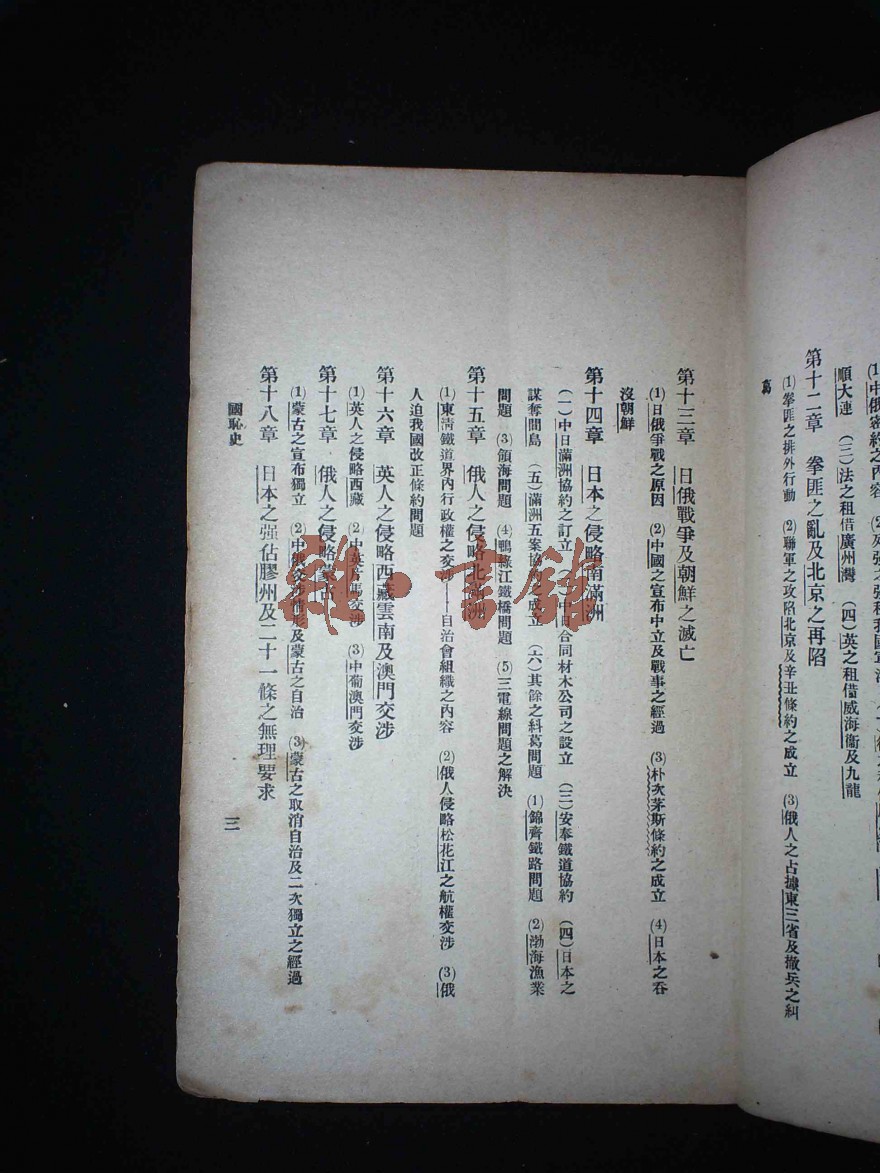 (1)中俄密約之內容 (2)列強之強租我國軍港
順大連 (三)法之租借廣州灣 (四)英之租借威海衞及九龍
第十二章 拳匪之亂及北京之再陷
(1)拳匪之排外行動 (2)聯軍之攻陷北京及辛丑條約之成立 (3)俄人之占據東三省及撤兵之糾
葛
第十三章 日俄戰爭及朝鮮之滅亡
(1)日俄爭戰之原因 (2)中國之宣布中立及戰事之經過 (3)朴次茅斯條約之成立 (4)日本之吞
沒朝鮮
第十四章 日本之侵略南滿洲
(一)中日滿洲協約之訂立 (二)中日合同材木公司之設立 (三)安奉鐵道協約 (四)日本之
謀奪間島 (五)滿洲五案協約之成立 (六)其餘之糾葛問題 (1)錦齊鐵路問題 (2)渤海漁業
問題 (3)領海問題 (4)鴨綠江鐵橋問題 (5)三電線問題之解決
第十五章 俄人之侵略北滿洲
(1)東淸鐵道界內行政權之交涉——自治會組織之內容 (2)俄人侵略松花江之航權交涉 (3)俄
人迫我國改正條約問題
第十六章 英人之侵略西藏雲南及澳門交涉
(1)英人之侵略西藏 (2)中英片馬交涉 (3)中葡澳門交涉
第十七章 俄人之侵略蒙古
(1)蒙古之宣布獨立 (2)中俄交涉情形及蒙古之自治 (3)蒙古之取消自治及二次獨立之經過
第十八章 日本之强佔膠州及二十一條之無理要求
國恥史 三
雜·書鋪